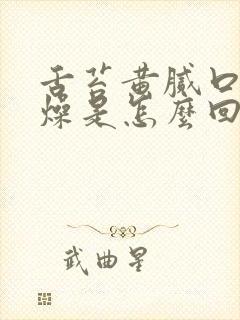 舌苔黄腻口
燥是怎麽回
武曲星